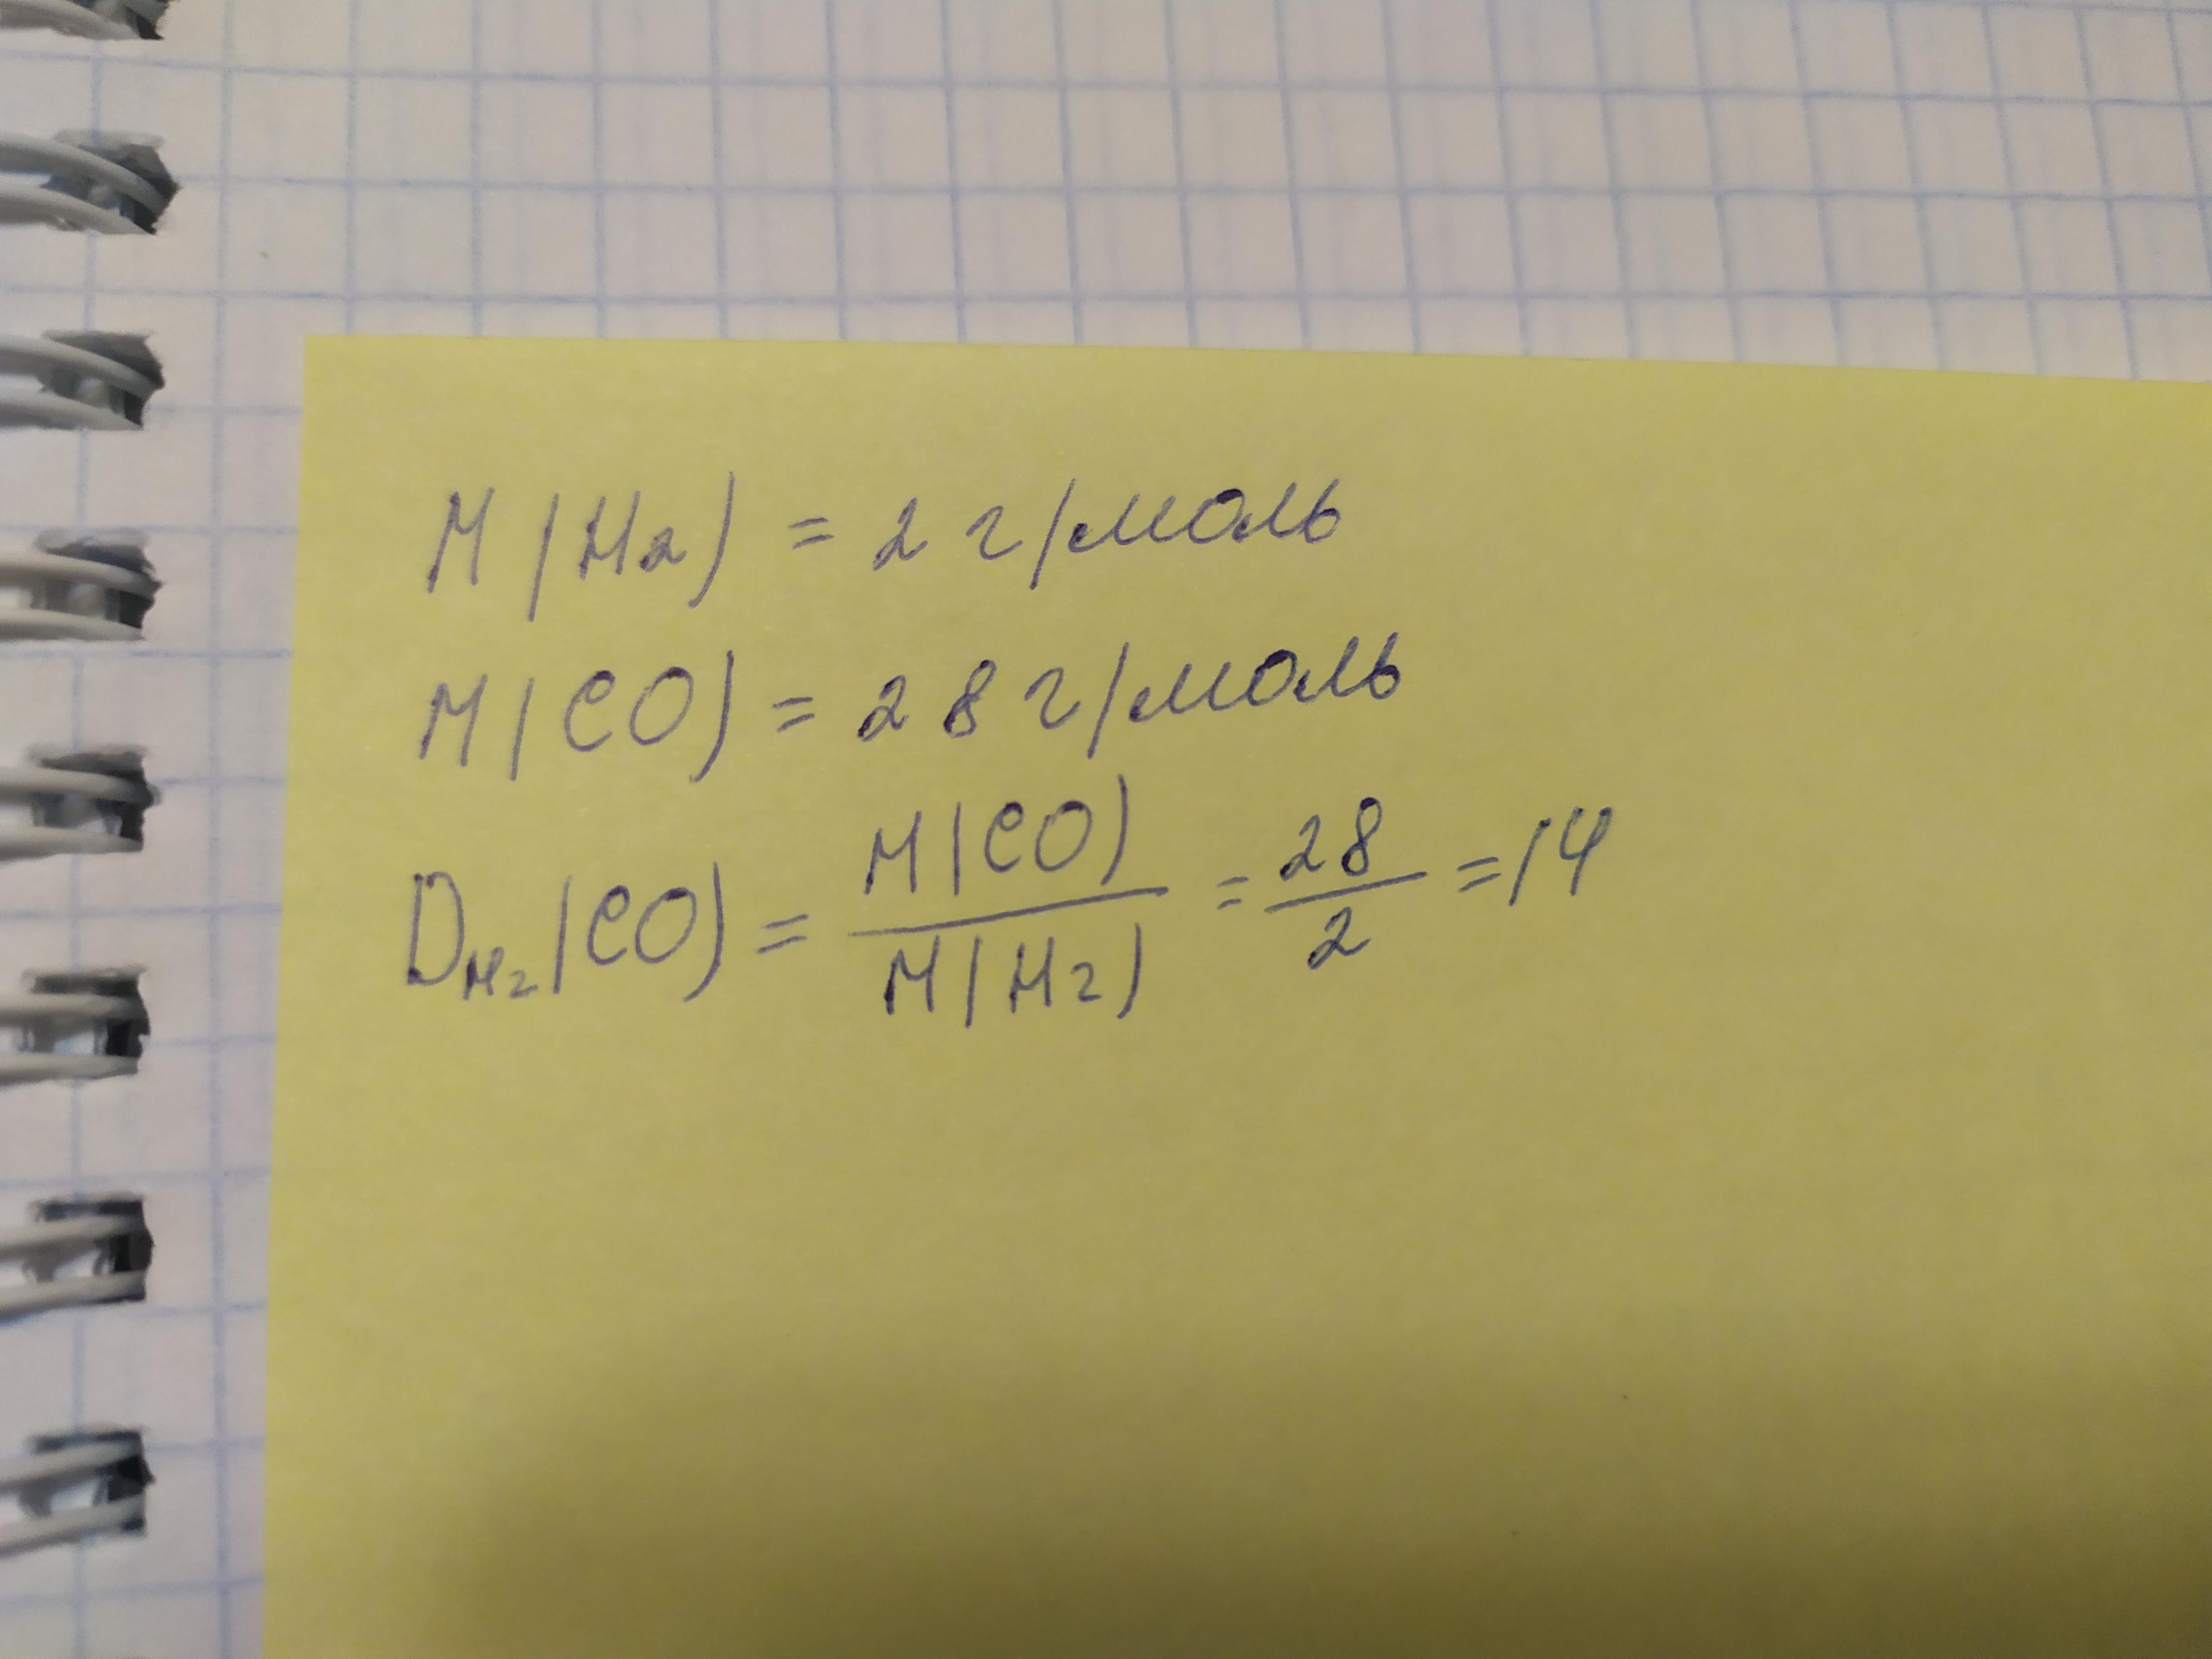 M(H2) = 2 г/моль
M(CO) = 28 г/моль
DH2(CO) = M(CO)/M(H2) = 28/2 = 14